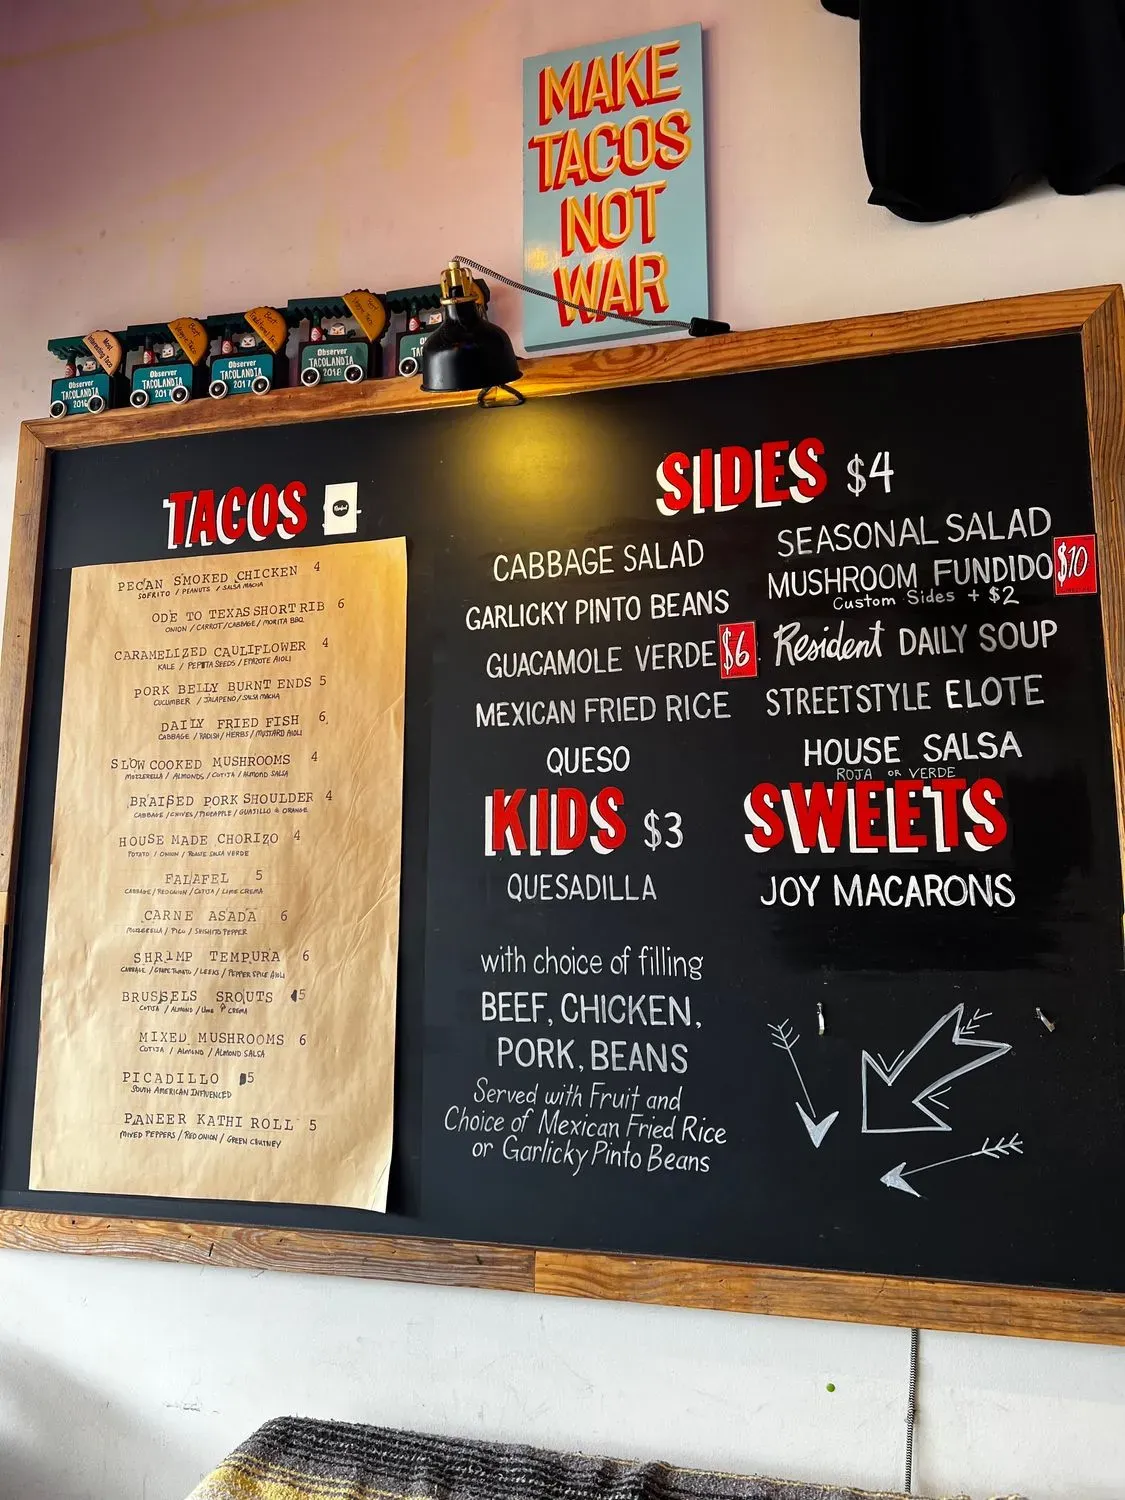 MAKE
TACOS
NOT
WAR
Most
Interesting Taco
Observer
TACOLANDIA
Best
Observer
TACOLANDIA
2017
Best
Traditional Taco
Observer
TACOLANDIA
2017
Best
Observer
TACOLANDIA
2018
TACOS
PECAN SMOKED CHICKEN 4
SOFRITO / PEANUTS / SALSA MACHA
ODE TO TEXAS SHORT RIB 6
ONION / CARROT / CABBAGE / MORITA BBQ
CARAMELIZED CAULIFLOWER 4
KALE / PEPITA SEEDS / EPAZOTE AIOLI
PORK BELLY BURNT ENDS 5
CUCUMBER / JALAPENO / SALSA MACHA
DAILY FRIED FISH 6
CABBAGE / RADISH / HERBS / MUSTARD AIOLI
SLOW COOKED MUSHROOMS 4
MOZZERELLA / ALMONDS / COTIJA / ALMOND SALSA
BRAISED PORK SHOULDER 4
CABBAGE / CHIVES / PINEAPPLE / GUAJILLO & ORANGE
HOUSE MADE CHORIZO 4
POTATO / ONION / ROASTE SALSA VERDE
FALAFEL 5
CABBAGE / RED ONION / COTIJA / LIME CREMA
CARNE ASADA 6
MOZZERELLA / PICO / SHISHITO PEPPER
SHRIMP TEMPURA 6
CABBAGE / GRAPE TOMATO / LEEKS / PEPPER SPICE AIOLI
BRUSSELS SROUTS 5
COTIJA / ALMOND / LIME CREMA
MIXED MUSHROOMS 6
COTIJA / ALMOND / ALMOND SALSA
PICADILLO 5
SOUTH AMERICAN INFLUENCED
PANEER KATHI ROLL 5
MIXED PEPPERS / RED ONION / GREEN CHUTNEY
SIDES $4
CABBAGE SALAD
GARLICKY PINTO BEANS
GUACAMOLE VERDE $6
MEXICAN FRIED RICE
QUESO
SEASONAL SALAD
MUSHROOM FUNDIDO $10
Custom Sides + $2
Resident DAILY SOUP
STREETSTYLE ELOTE
HOUSE SALSA
ROJA OR VERDE
KIDS $3
QUESADILLA
with choice of filling
BEEF, CHICKEN,
PORK, BEANS
Served with Fruit and
Choice of Mexican Fried Rice
or Garlicky Pinto Beans
SWEETS
JOY MACARONS